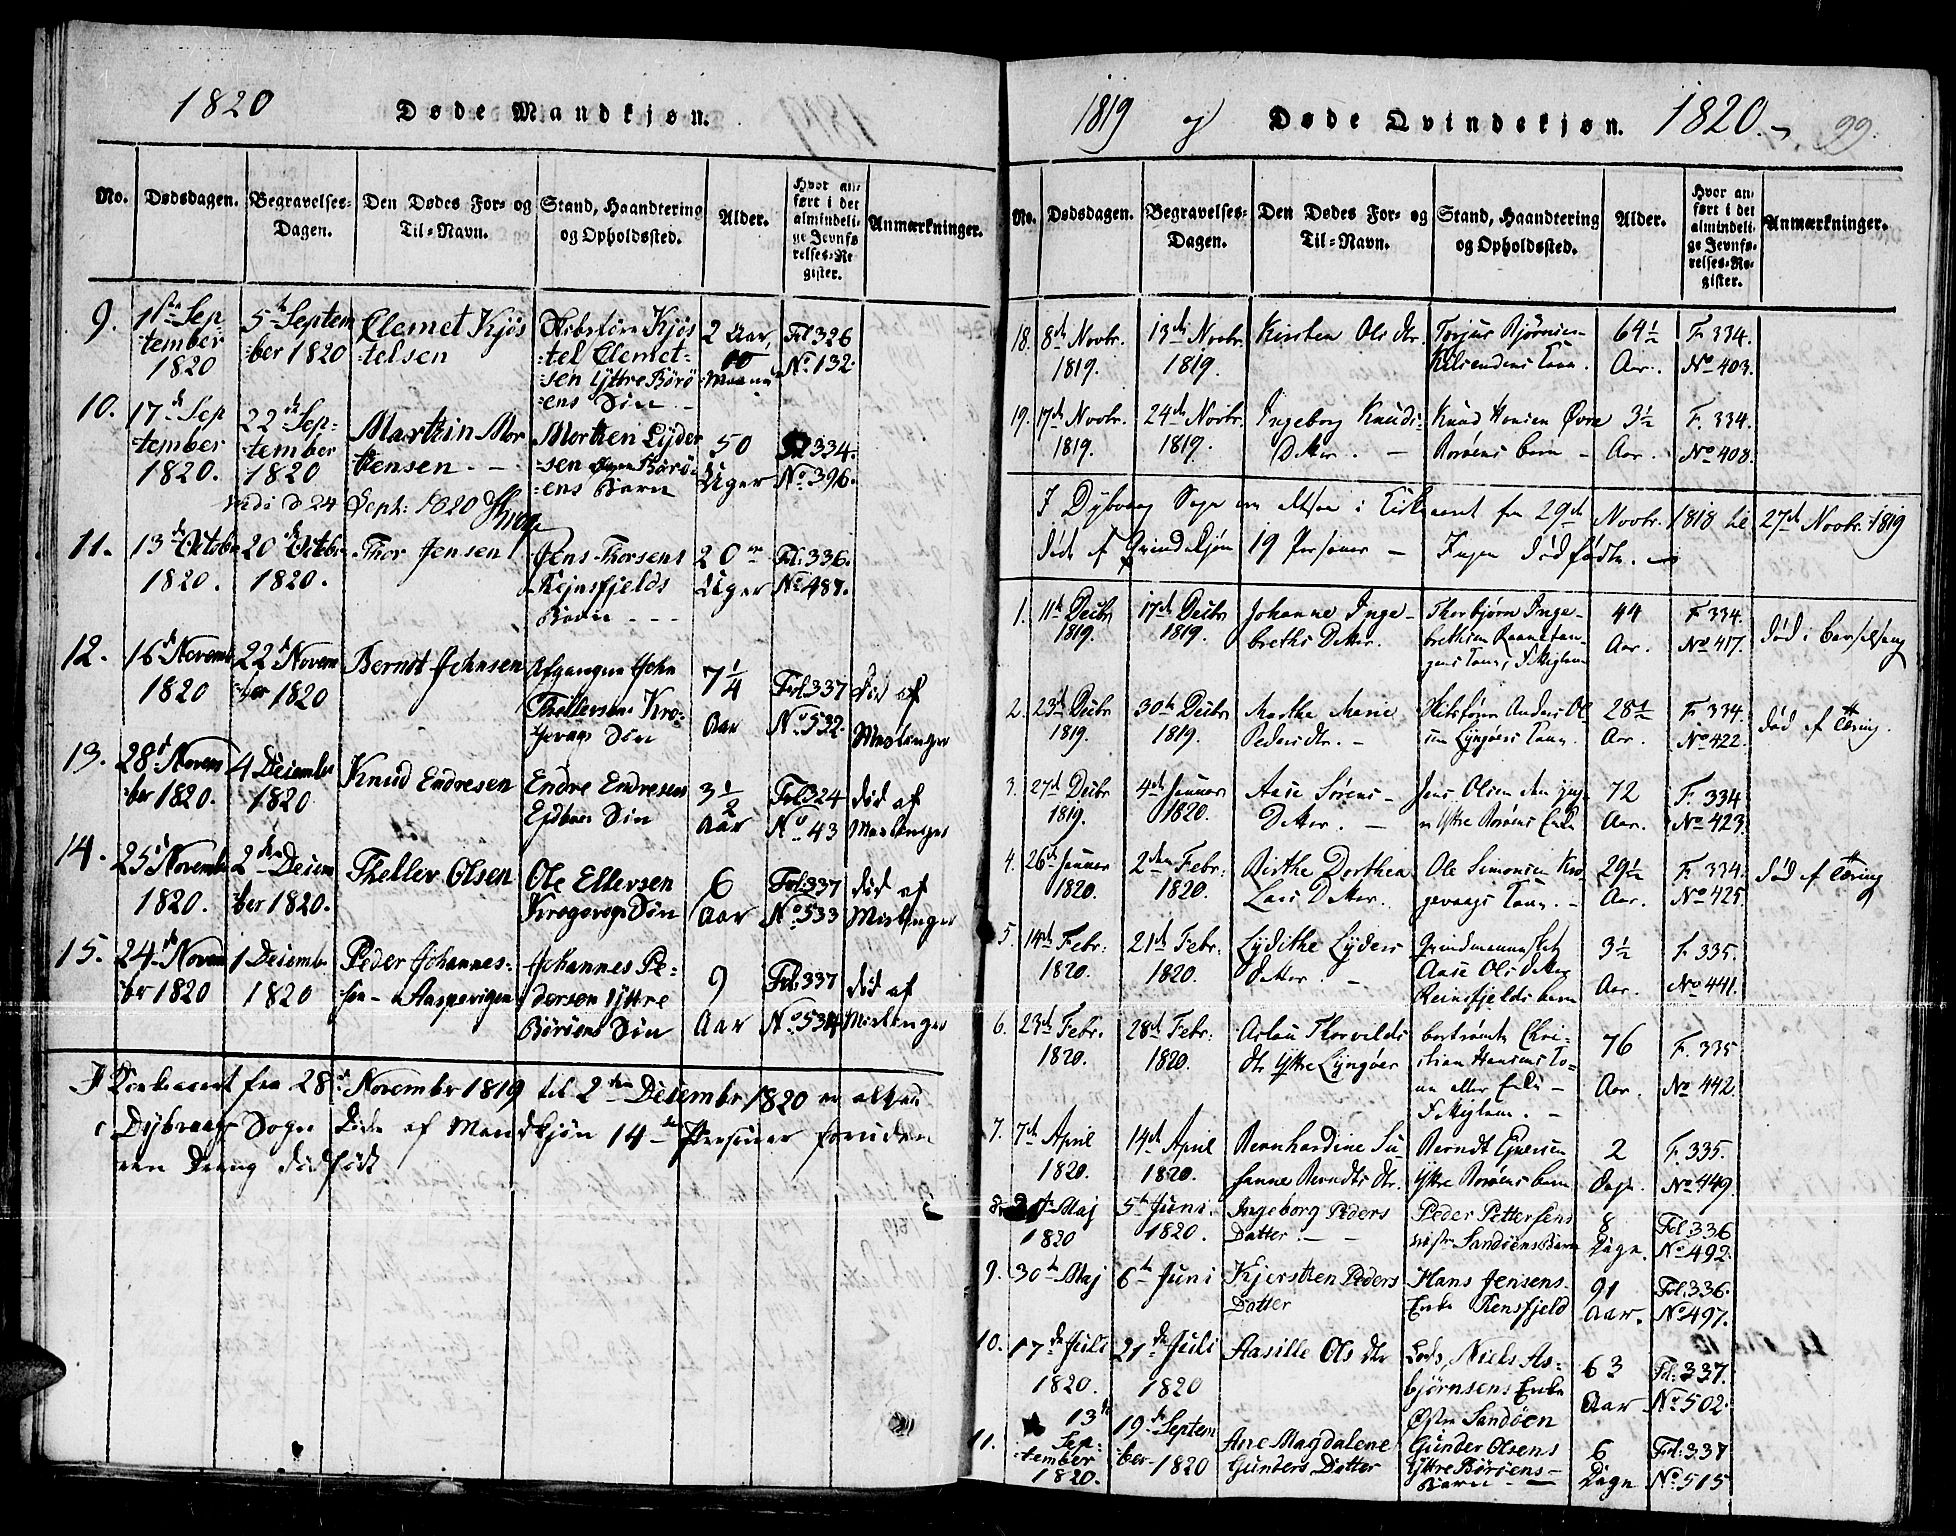 1820
Døde Mandkjøn.
No.
Dødsdagen.
Begravelses-
Dagen.
Den Dødes For- og
Til-Navn.
Stand, Haandtering
og Opholdssted.
Alder.
Hvor an-
ført i det
almindeli-
ge Jevnfø-
relses-Re-
gister.
Anmærkninger.
9.
1ste Sep-
tember
1820
5te Septem
ber 1820
Clemet Kjös
telsen
Kjös
tel Clemet-
sen Yttre Börö
ens Sön
2 Aar,
10
Maaned
Fol 326
No. 132.
10.
17de Sep
tember
1820.
22de Sep-
tember
1820
Marthin Mor
tensen.
Morthen Lyder
sen Börö-
ens Barn
50
Uger
334.
No. 396.
24 Sept: 1820
11.
13de Octobr
1820.
20de Octobr
1820.
Thor Jensen
Jens Thorsens
Rejnsfjelds
20
Uger
Fol: 336.
No. 487.
12.
16de Novemb
1820
22de Novem
ber 1820
Bernt Johnsen
Afgangne John
Thellersens Kro-
gevaags Sön
7 1/4
Aar
Fol: 337
No. 532.
död af
Meslinger
13.
28de Novem
ber 1820.
4 Decembr
1820
Knud Endresen
Endre Endresen
Sön
3 1/2
Aar
Fol 324
No. 43
död af
Meslinger
14.
25de Novembr
1820.
2den Decem
ber 1820.
Theller Olsen
Ole Ellersen
Krogevogs Sön
6
Aar
Fol: 337
No. 533
död af
Meslinger
15.
24de Novem
ber 1820
1 Decembr
1820
Peder Johannes-
sen Aaspevigen
Johannes Pe-
dersen Yttre
Böröens Sön
9
Aar
Fol: 337
No. 534
död af
Meslinger
I Kirkeaaret fra 28de November 1819 til 2den Decembr 1820 er altsaa
i Dybvaags Sogn Döde af Mandkjön 14 Personer foruden
een Dreng dödfödt
1819 og
Døde Qvindekjøn.
1820.
99.
No.
Dødsdagen.
Begravelses-
Dagen.
Den Dødes For- og
Til-Navn.
Stand, Haandtering
og Opholdssted.
Alder.
Hvor an-
ført i det
almindeli-
ge Jevnfø-
relses-Re-
gister.
Anmærkninger.
18.
8de Novbr.
1819.
13de Novbr.
1819.
Kirsten Ols dtr.
Torjus Bjørnsen
64 1/2
Aar.
F. 334.
No 403.
19.
17de Novbr.
1819.
24de Novbr.
1819.
Ingeborg Knuds-
Datter.
Knud Hansen Øvre
Borøens barn
3 1/2
Aar.
F. 334.
No 408.
I Dybvaag Sogn ere altsaa i Kirkeaaret fra 29de Novbr. 1818 til 27de Novbr. 1819
døde af Qvindekjøn 19 Personer - Ingen dødfødte.
1.
11te Decbr
1819.
17de Decbr
1819.
Johanne Inge-
breths Datter.
Thorbjørn Inge-
brethsen
44
Aar.
F. 334.
No 417.
død i barselseng
2.
23de Decbr
1819.
30te Decbr
1819.
Marthe Marie
Peders dtr.
Skibsfører Anders Ol-
sen Lyngøers Kone.
28 1/2
Aar.
F. 334.
No 422.
død af Tæring.
3.
27de Decbr
1819.
4de Januar
1820.
Aase Sørens-
Datter.
Jens Olsen den yng-
re Yttre Borøens Enke
72
Aar.
F. 334
No 423.
4.
26de Januar
1820.
2den Febr.
1820.
Birthe Dorthea
Lars Datter.
Ole Simonsen Kro-
gevaags Kone.
29 1/2
Aar.
F. 334.
No 425
død af Tæring
5.
14de Febr.
1820.
21de Febr.
1820.
Lydithe Lyders
datter.
Qvindemennesket
Aase Ols datter
Reinsfjelds barn
3 1/2
Aar.
F. 335.
No 441.
6.
23de Febr.
1820.
28de Febr.
1820.
Aslau Thorvilds
dtr Yttre Lyngøer
bortrømte Chri-
stian Hansens Ko-
ne eller Enke
76
Aar.
F. 335
No 442.
7.
7de April
1820.
14de April
1820.
Bernhardine Su-
sanne Berndts dtr.
Berndt Ejversen
Yttre Borøens barn
2
Dage.
F. 335.
No 449.
8.
Maj
1820
5te Juni.
1820.
Ingeborg Peders
Datter.
Peder Pettersens
Sandöens Barn
8
Dage.
Fol: 336
No. 492.
9.
30te Maj
6te Juni
Kjersthen Peders
Datter
Hans Jensens
Enke Rensfjeld
91
Aar.
Fol: 336.
No. 497.
10.
17de Juli
1820.
21de Juli
1820
Aasille Ols dtr
Lods Niels As-
björnsens Enke
Östre Sandöen
63
Aar
Fol: 337.
No 502.
11.
13de
Sep-
tember
1820.
19de Septem
ber 1820
Ane Magdalene
Gunders Datter
Gunder Olsens
Yttre Böröens
Barn
6
Dage
Fol: 337
No. 515